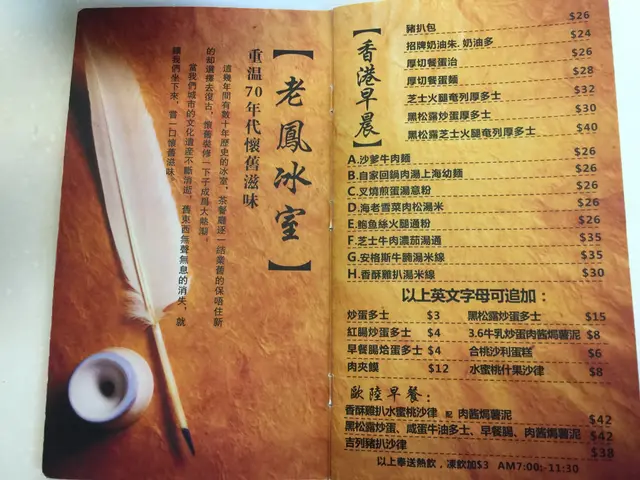 【老鳳冰室】
重溫70年代懷舊滋味
這幾年間有數十年歷史的冰室、茶餐廳逐一結業舊的保唔住新
的卻選擇去復古，懷舊裝修一下子成為大熱潮。
當我們城市的文化遺產不斷消逝，舊東西無聲無息的消失，就
讓我們坐下來，嘗一口懷舊滋味。
【香港早晨】
豬扒包 $26
招牌奶油朱. 奶油多 $24
厚切餐蛋治 $26
厚切餐蛋麵 $28
芝士火腿奄列厚多士 $32
黑松露炒蛋厚多士 $30
黑松露芝士火腿奄列厚多士 $40
A.沙爹牛肉麵 $26
B.自家回鍋肉湯上海幼麵 $26
C.叉燒煎蛋湯意粉 $26
D.海老雪菜肉松湯米 $26
E.鮑魚絲火腿通粉 $26
F.芝士牛肉濃茄湯通 $35
G.安格斯牛腩湯米線 $35
H.香酥雞扒湯米線 $30
以上英文字母可追加：
炒蛋多士 $3 黑松露炒蛋多士 $15
紅腸炒蛋多士 $4 3.6牛乳炒蛋肉醬焗薯泥 $8
早餐腸烚蛋多士 $4 合桃沙利蛋糕 $6
肉夾饃 $12 水蜜桃什果沙律 $8
歐陸早餐：
香酥雞扒水蜜桃沙律 配 肉醬焗薯泥 $42
黑松露炒蛋、咸蛋牛油多士、早餐腸、肉醬焗薯泥 $42
吉列豬扒沙律 $38
以上奉送熱飲，凍飲加$3 AM7:00:-11:30